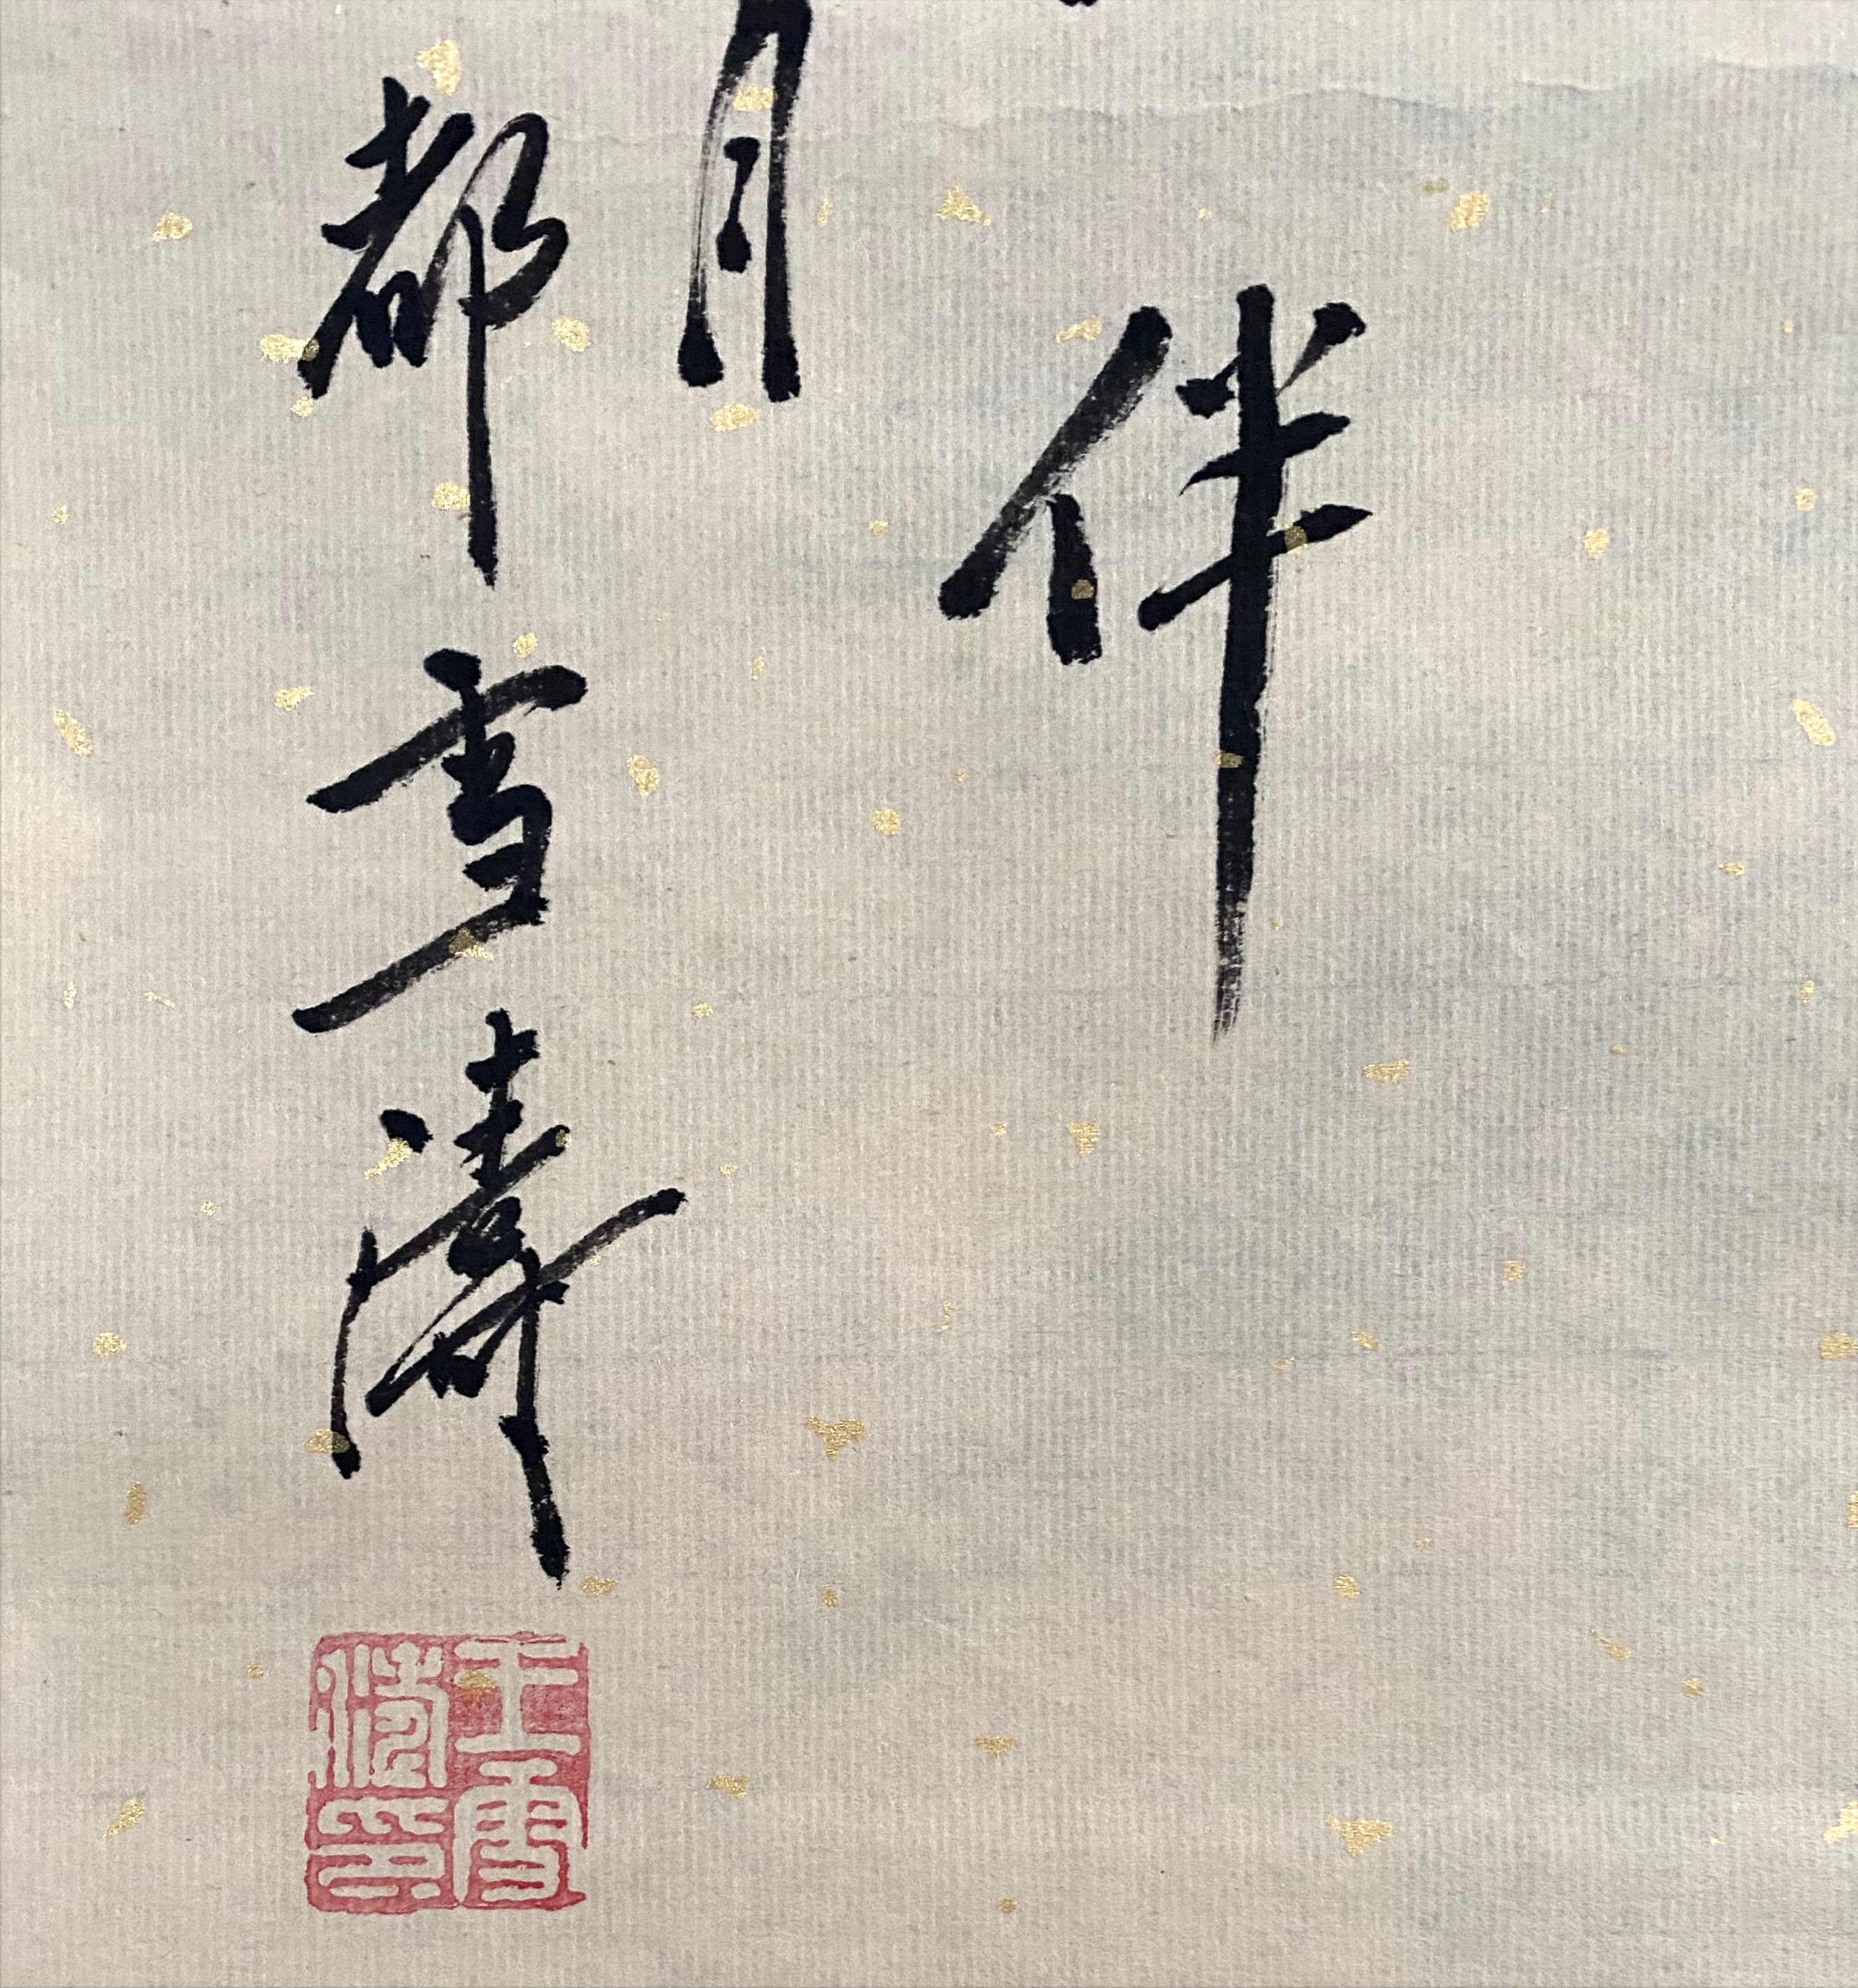 伴
月
都雪濤
王雪濤印